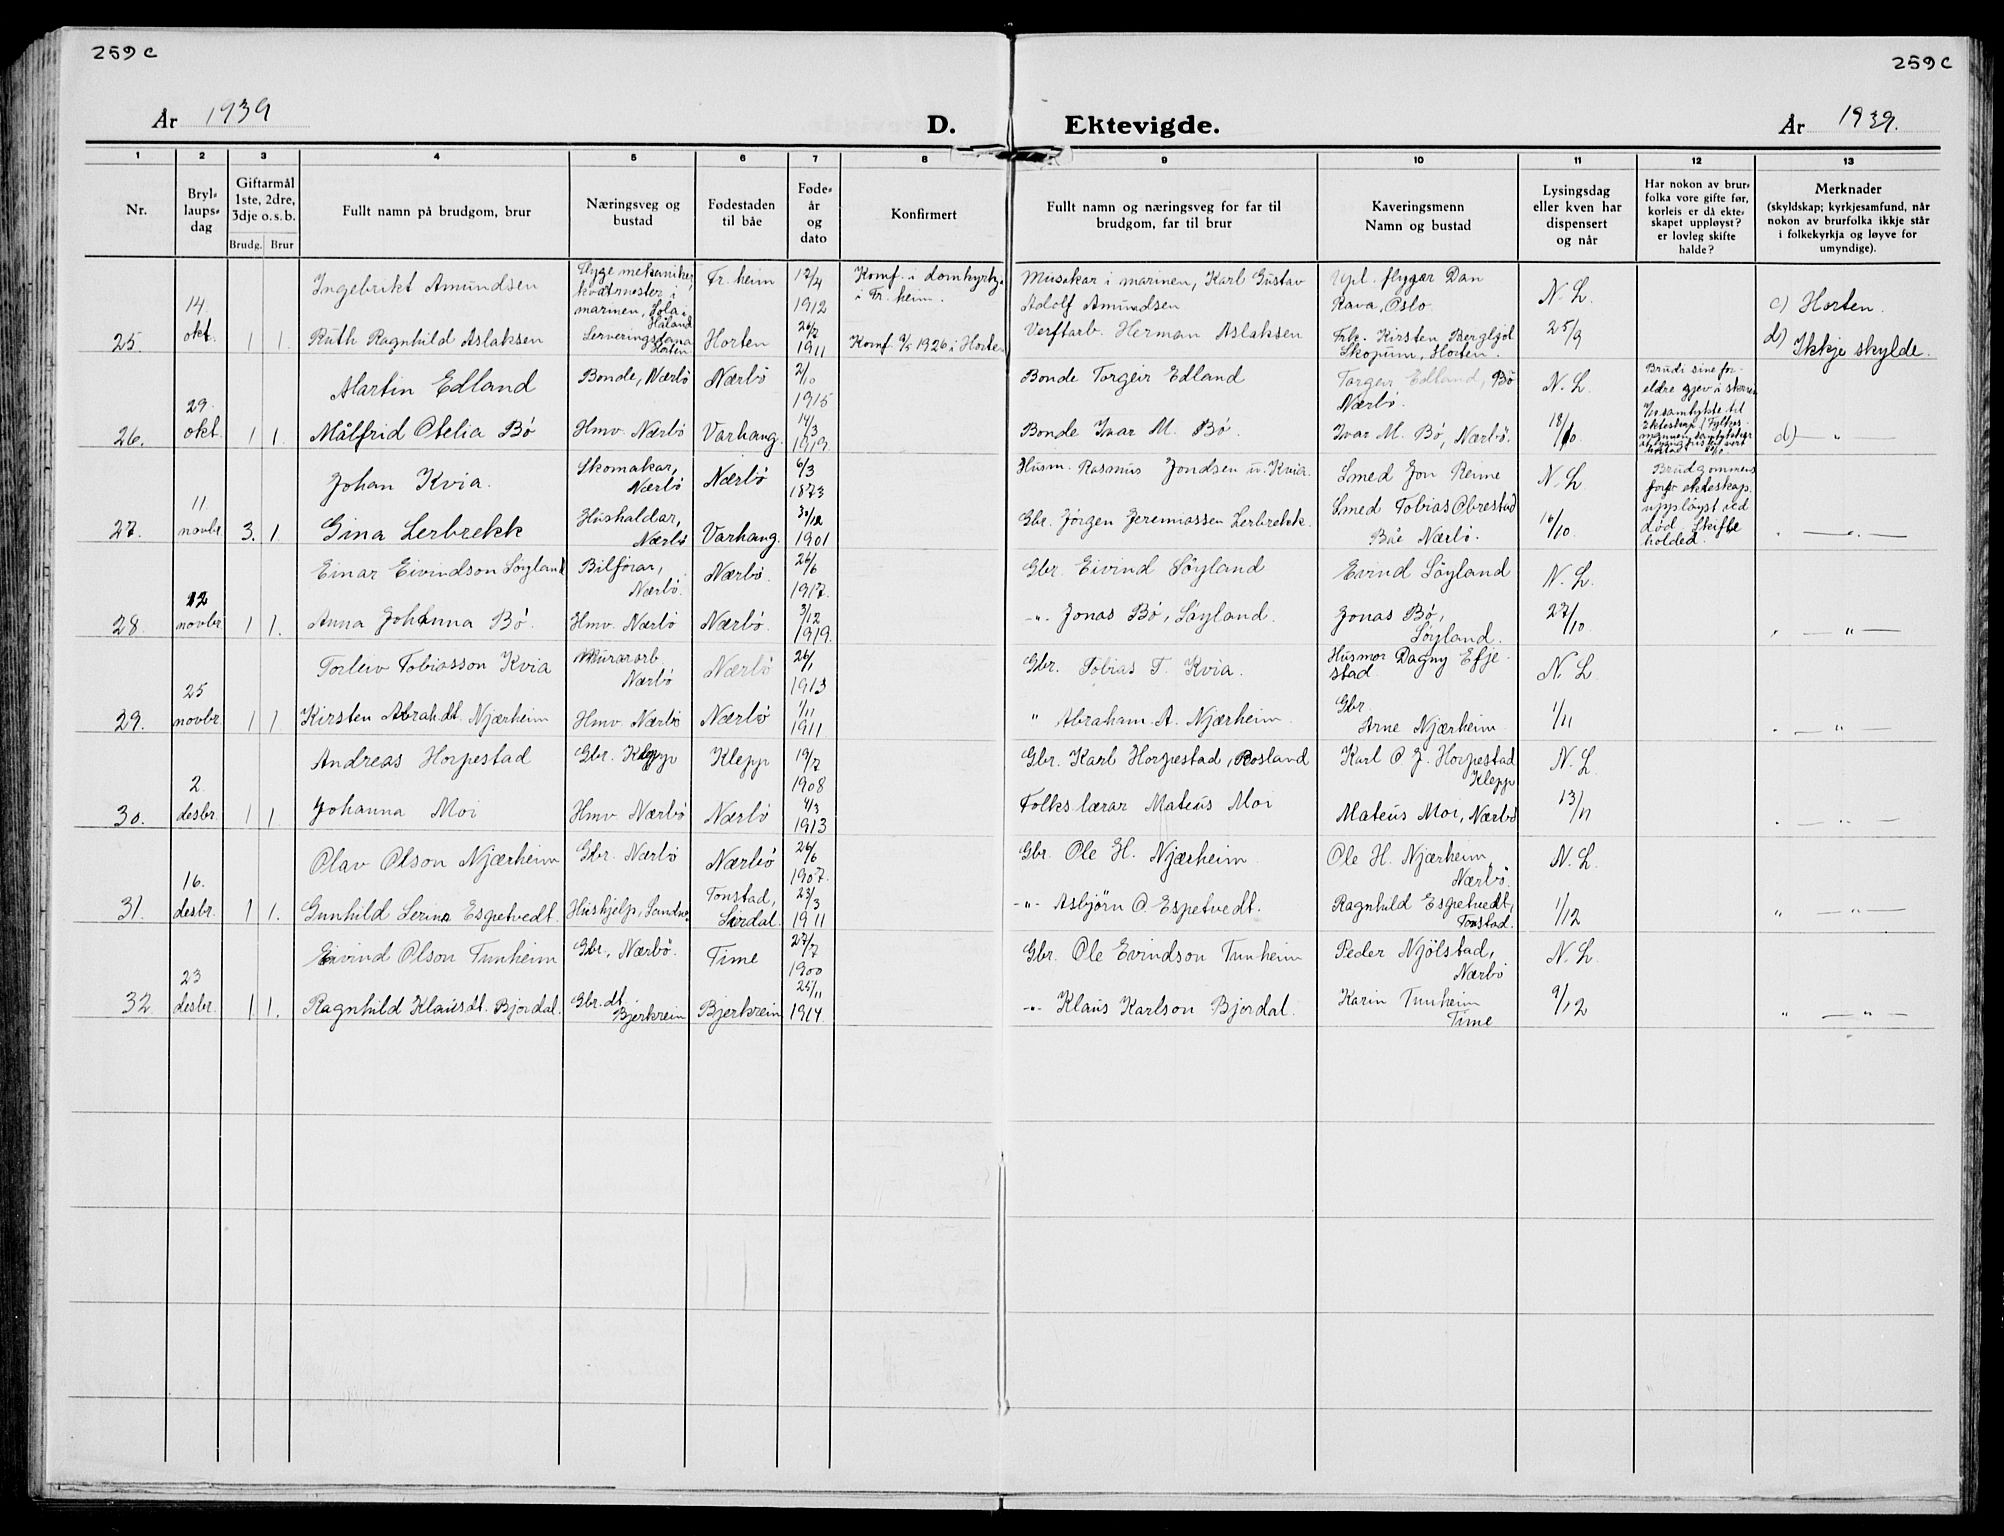 259 c
259 c
År 1939
D. Ektevigde.
År 1939.
1 2 3 4 5 6 7 8 9 10 11 12 13
Nr.
Bryl-
laups-
dag
Giftarmål
1ste, 2dre,
3dje o. s. b.
Brudg. Brur
Fullt namn på brudgom, brur
Næringsveg og
bustad
Fødestaden
til båe
Føde-
år
og
dato
Konfirmert
Fullt namn og næringsveg for far til
brudgom, far til brur
Kaveringsmenn
Namn og bustad
Lysingsdag
eller kven har
dispensert
og når
Har nokon av brur-
folka vore gifte før,
korleis er då ekte-
skapet uppløyst?
er lovleg skifte
halde?
Merknader
(skyldskap; kyrkjesamfund, når
nokon av brurfolka ikkje står
i folkekyrkja og løyve for
umyndige).
25. 14. okt. 1 1.
Ingebrikt Amundsen
Flyge mekaniker,
kvartmester i
marinen, Sola i
Håland
Tr. heim
12/4
1912
Konf. i domkyrkja
i Tr. heim.
Musikar i marinen, Karl Gustav
Adolf Amundsen
Vpl. flyger Dan
Rava, Oslo.
N. L.
c) Horten.
Ruth Ragnhild Aslaksen
Serveringsdama
Horten
Horten
26/7
1911
Konf. 9/5 1926 i Horten
Verftarb. Herman Aslaksen
Frk. Kirsten Bergljot
Skopum, Horten.
25/9
d) Ikkje skylde.
26. 29. okt. 1 1.
Martin Edland
Bonde, Nærbö
Nærbö
2/10
1915
Bonde Torgeir Edland
Torgeir Edland, Bö
Nærbö.
N. L.
Brudi sine for-
eldre gjev i skriv
samtykke til
ekteskap
Målfrid Otelia Bö
Hmv. Nærbö
Varhaug.
14/3
1919.
Bonde Ivar M. Bö.
Ivar M. Bö, Nærbö.
18/10
d) — " —
27. 11. novbr. 3. 1.
Johan Kvia.
Skomakar,
Nærbö
Nærbö
6/3
1873
Husm. Rasmus Jondsen u. Kvia.
Smed Jon Reime
N. L.
Brudgommens
forr ekteskap.
upplöyst ved
död. Skifte
holded.
Gina Lerbrekk
Hushaldar,
Nærbö
Varhaug.
30/12
1901
Gbr. Jörgen Jeremiassen Lerbrekk.
Smed Tobias Obrestad
Båe Nærbö.
16/10
" — " —
28. 12 novbr 1 1.
Einar Eivindson Söyland
Bilförar,
Nærbö.
Nærbö.
26/6
1917.
Gbr. Eivind Söyland
Eivind Söyland
N. L.
Anna Johanna Bö.
Hmv. Nærbö
Nærbö.
3/12
1919.
-"- Jonas Bö, Söyland.
Jonas Bö,
Söyland.
27/10
" — " —
29. 25 novbr. 1 1
Torleiv Tobiasson Kvia
Murararb
Nærbö
Nærbö
26/1
1913
Gbr. Tobias T. Kvia.
Husmor Dagny Efje-
stad
N. L.
Kirsten Abrah.dt. Njærheim
Hmv. Nærbö
Nærbö
1/11
1911
" Abraham. A. Njærheim.
Gbr.
Arne Njærheim
1/11
" — " —
30. 2. desbr. 1 1.
Andreas Horpestad
Gbr. Klepp
Klepp
19/7
1908
Gbr. Karl Horpestad, Rosland
Karl O. J. Horpestad
Klepp
N. L.
Johanna Moi
Hmv. Nærbö
Nærbö
4/3
1913
Folkslærar Mateus Moi
Mateus Moi, Nærbö
13/11
" — " —
31. 16. desbr. 1 1.
Olav Olson Njærheim
Gbr. Nærbö
Nærbö
26/6
1907.
Gbr. Ole H. Njærheim.
Ole H. Njærheim,
Nærbö.
N. L.
Gunhild Serina Espetvedt.
Hushjelp, Sandnes
Tonstad,
Sirdal.
23/3
1911
-"- Asbjörn O. Espetvedt.
Ragnhild Espetvedt,
Tonstad.
1/12
" — " —
32. 23 desbr. 1 1.
Eivind Olson Tunheim
Gbr, Nærbö.
Time
27/7
1900
Gbr. Ole Eivindson Tunheim
Peder Njölstad,
Nærbö
N. L.
Ragnhild Klausdt. Bjordal.
Gbr.dt.
Bjerkreim
Bjerkreim
25/11
1914.
-"- Klaus Karlson Bjordal.
Karin Tunheim
Time
9/12
" — " —